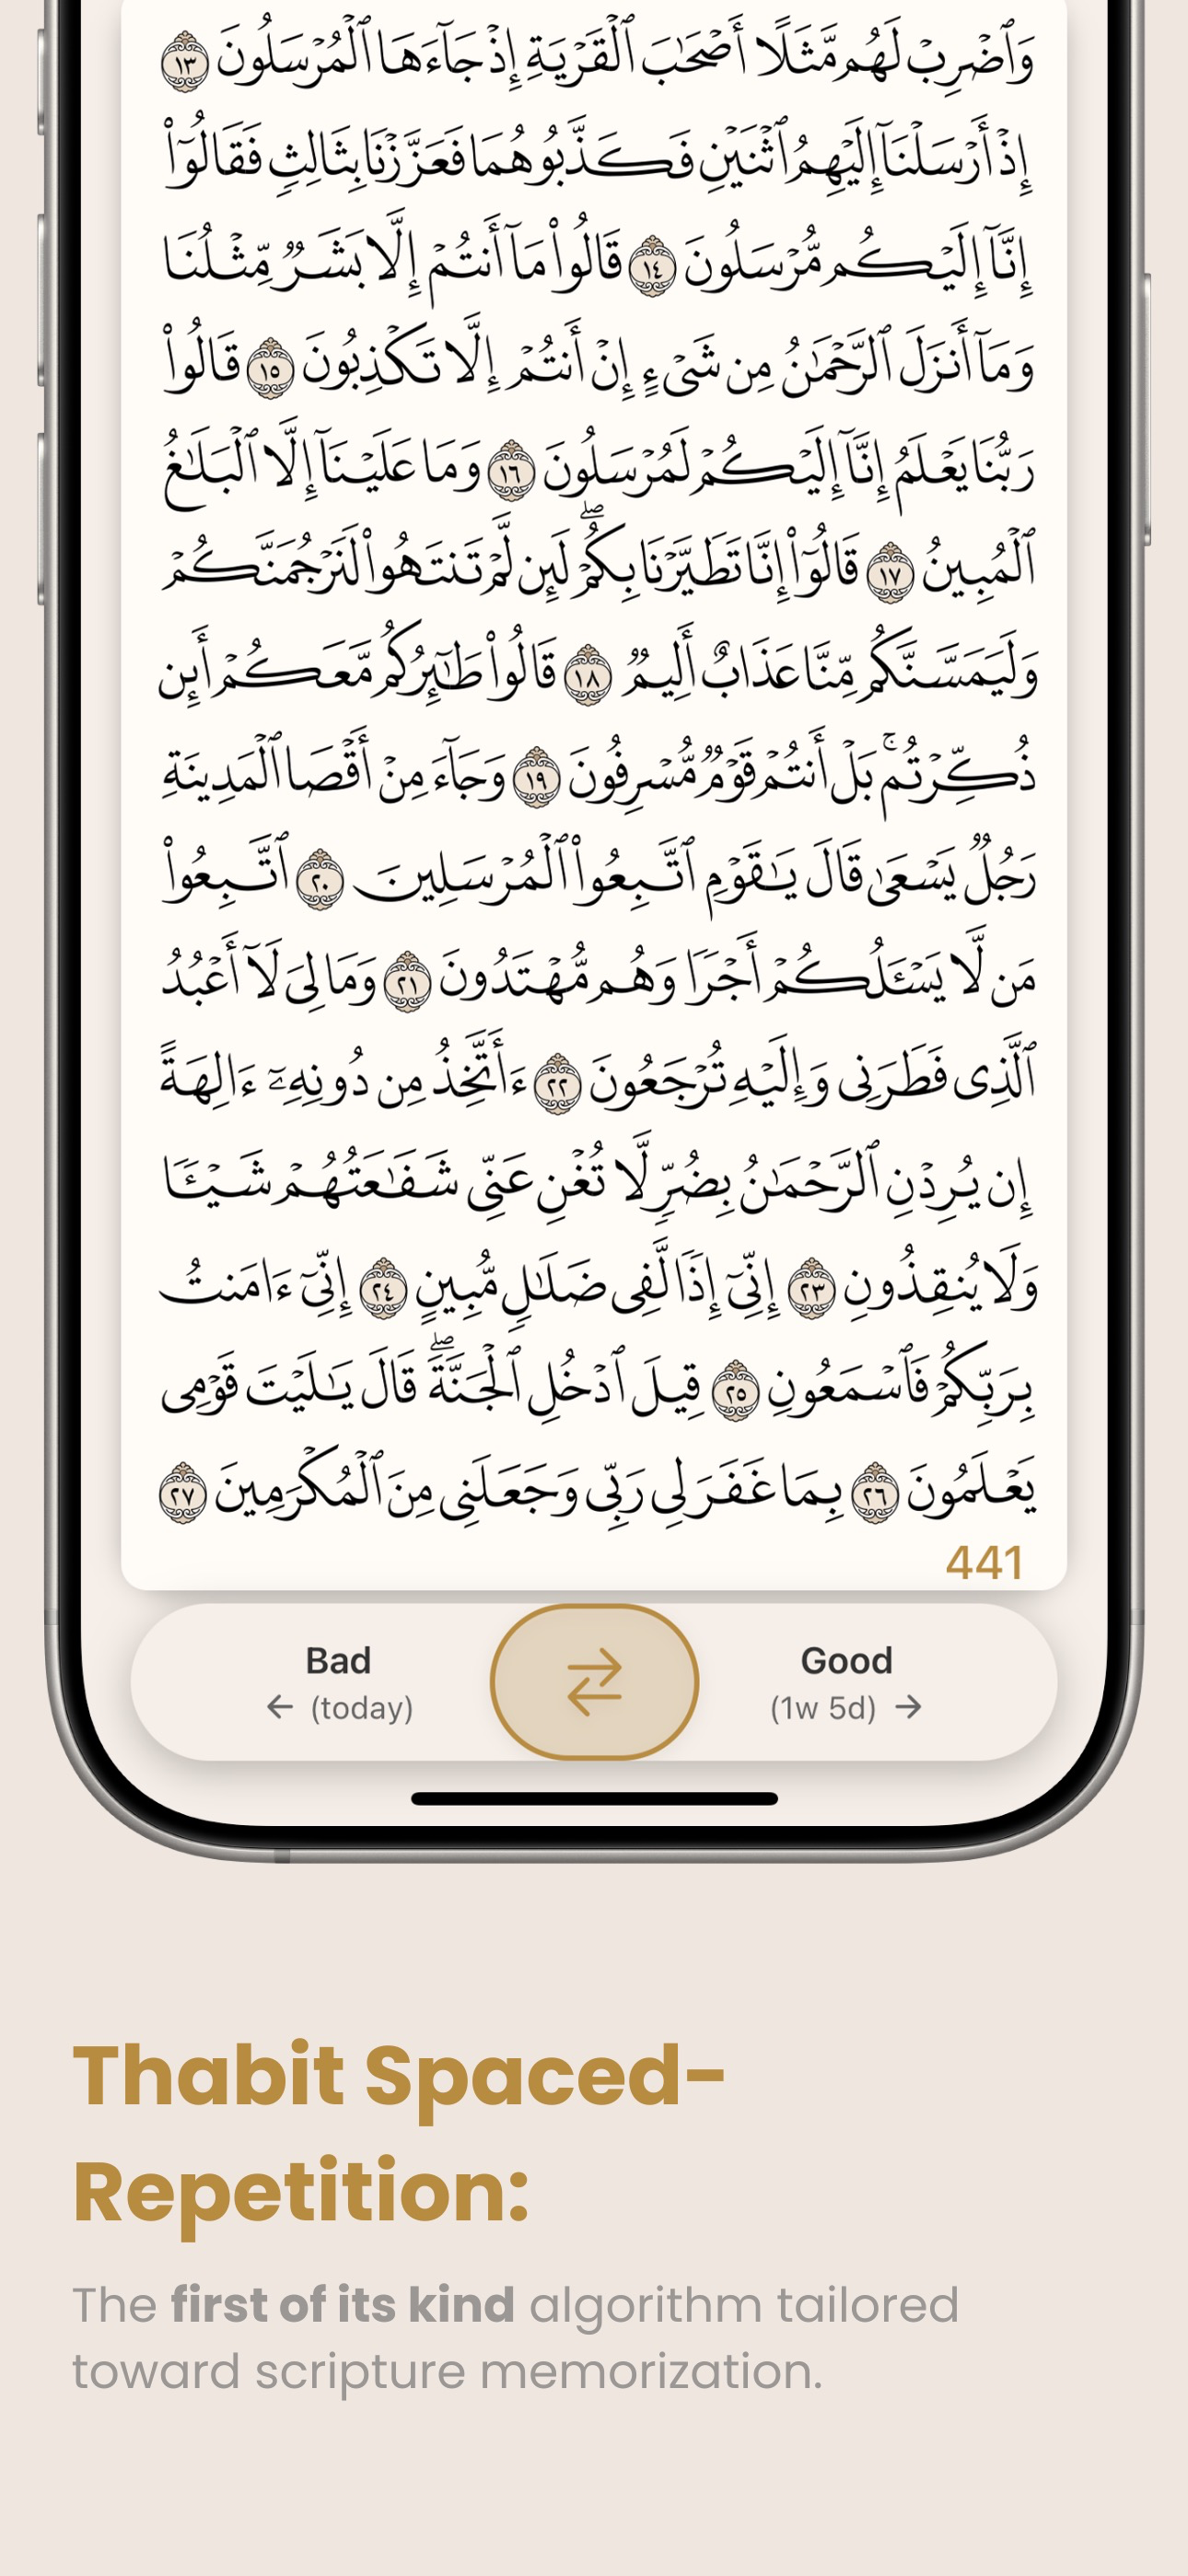 وَٱضْرِبْ لَهُم مَّثَلًا أَصْحَٰبَ ٱلْقَرْيَةِ إِذْ جَآءَهَا ٱلْمُرْسَلُونَ ١٣
إِذْ أَرْسَلْنَآ إِلَيْهِمُ ٱثْنَيْنِ فَكَذَّبُوهُمَا فَعَزَّزْنَا بِثَالِثٍ فَقَالُوٓا۟
إِنَّآ إِلَيْكُم مُّرْسَلُونَ ١٤ قَالُوا۟ مَآ أَنتُمْ إِلَّا بَشَرٌ مِّثْلُنَا
وَمَآ أَنزَلَ ٱلرَّحْمَٰنُ مِن شَىْءٍ إِنْ أَنتُمْ إِلَّا تَكْذِبُونَ ١٥ قَالُوا۟
رَبُّنَا يَعْلَمُ إِنَّآ إِلَيْكُمْ لَمُرْسَلُونَ ١٦ وَمَا عَلَيْنَآ إِلَّا ٱلْبَلَٰغُ
ٱلْمُبِينُ ١٧ قَالُوٓا۟ إِنَّا تَطَيَّرْنَا بِكُمْ ۖ لَئِن لَّمْ تَنتَهُوا۟ لَنَرْجُمَنَّكُمْ
وَلَيَمَسَّنَّكُم مِّنَّا عَذَابٌ أَلِيمٌ ١٨ قَالُوا۟ طَٰٓئِرُكُم مَّعَكُمْ أَئِن
ذُكِّرْتُم ۚ بَلْ أَنتُمْ قَوْمٌ مُّسْرِفُونَ ١٩ وَجَآءَ مِنْ أَقْصَا ٱلْمَدِينَةِ
رَجُلٌ يَسْعَىٰ قَالَ يَٰقَوْمِ ٱتَّبِعُوا۟ ٱلْمُرْسَلِينَ ٢٠ ٱتَّبِعُوا۟
مَن لَّا يَسْـَٔلُكُمْ أَجْرًا وَهُم مُّهْتَدُونَ ٢١ وَمَا لِىَ لَآ أَعْبُدُ
ٱلَّذِى فَطَرَنِى وَإِلَيْهِ تُرْجَعُونَ ٢٢ ءَأَتَّخِذُ مِن دُونِهِۦٓ ءَالِهَةً
إِن يُرِدْنِ ٱلرَّحْمَٰنُ بِضُرٍّ لَّا تُغْنِ عَنِّى شَفَٰعَتُهُمْ شَيْـًٔا
وَلَا يُنقِذُونِ ٢٣ إِنِّىٓ إِذًا لَّفِى ضَلَٰلٍ مُّبِينٍ ٢٤ إِنِّىٓ ءَامَنتُ
بِرَبِّكُمْ فَٱسْمَعُونِ ٢٥ قِيلَ ٱدْخُلِ ٱلْجَنَّةَ ۖ قَالَ يَٰلَيْتَ قَوْمِى
يَعْلَمُونَ ٢٦ بِمَا غَفَرَ لِى رَبِّى وَجَعَلَنِى مِنَ ٱلْمُكْرَمِينَ ٢٧
441
Bad
← (today)
Good
(1w 5d) →
Thabit Spaced-
Repetition:
The first of its kind algorithm tailored
toward scripture memorization.